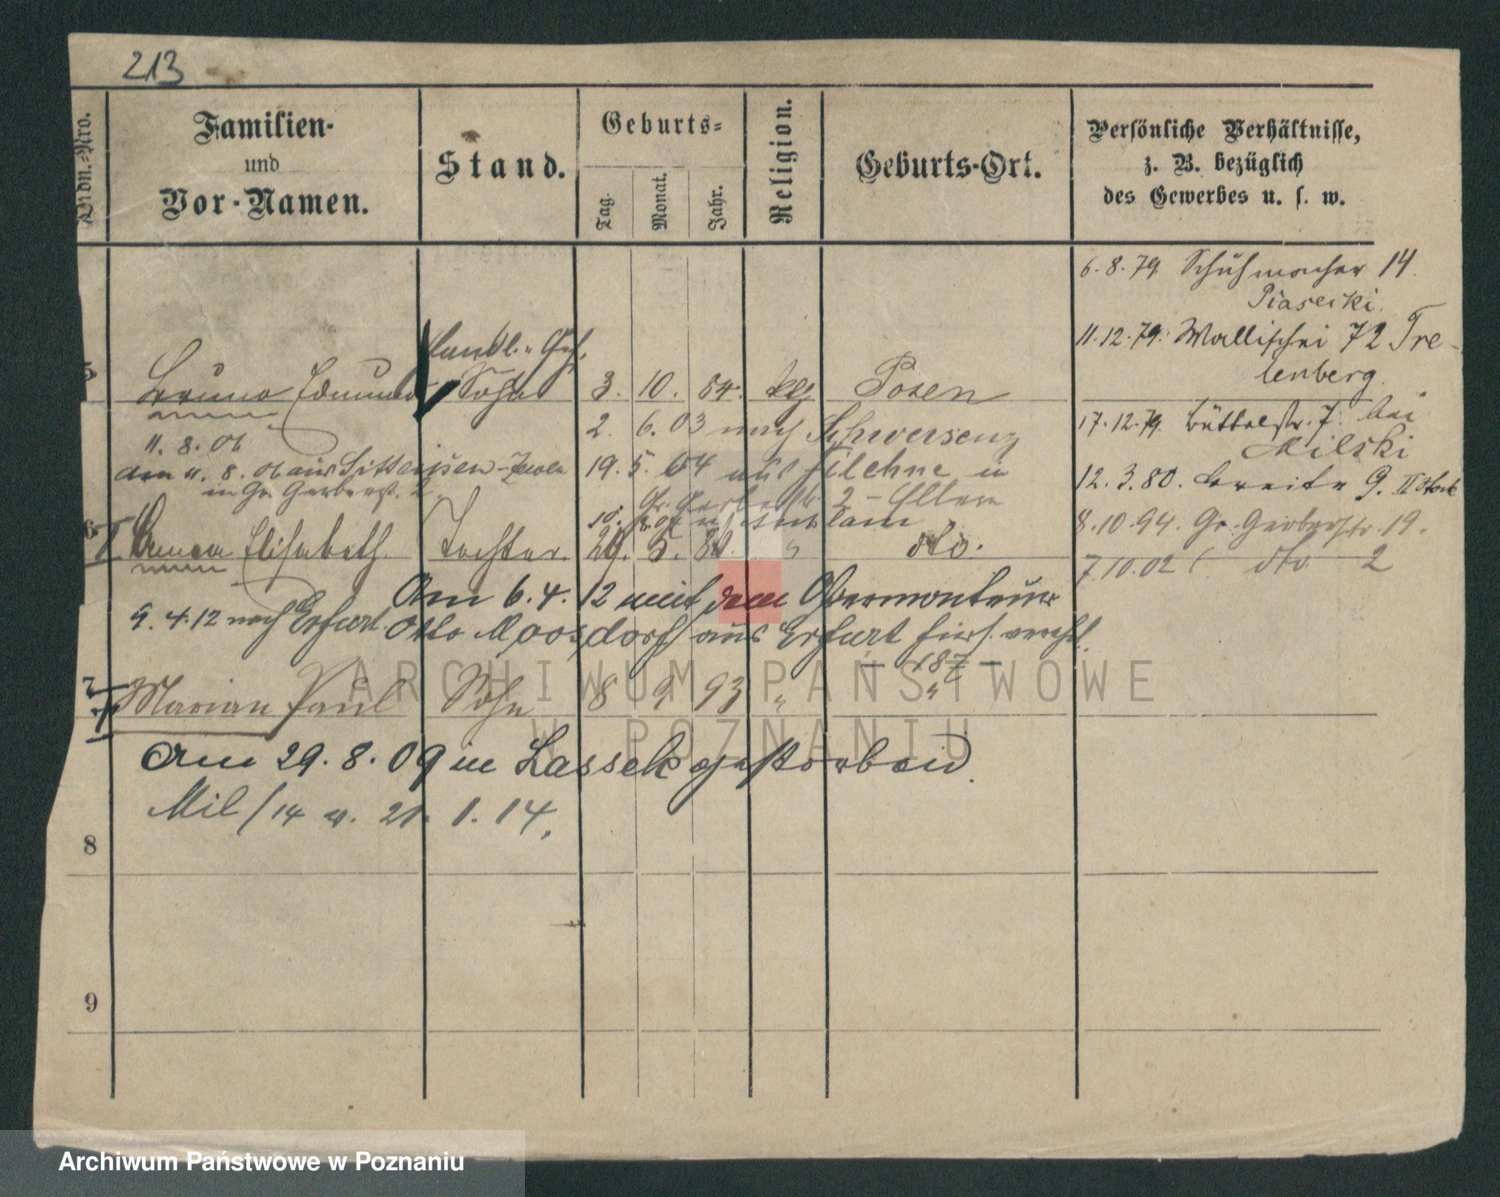 213
Ordn.-Nro.
Familien-
und
Vor-Namen.
Stand.
Geburts-
Tag.
Monat.
Jahr.
Religion.
Geburts-Ort.
Persönliche Verhältnisse,
z. B. bezüglich
des Gewerbes u. s. w.
6.8.79 Schuhmacher 14
Piasecki.
11.12.79. Wallischei 72 Tre-
lenberg.
17.12.79 Büttelstr. 7. bei
Milski
12.3.80. Breite 9. II
8.10.94. Gr. Gerberstr. 19.
7.10.02 dto 2
5
Handl. Geh.
Bruno Edmund Sohn 3. 10. 84. Posen
2. 6. 03 nach Schwersenz
11. 8. 06
19. 5. 04 aus Filehne in
am 11. 8. 06 aus
in Gr. Gerberst. 2
Gr. Gerberstr 2 - Eltern
6
Elisabeth Tochter 5. dto.
Am 6.4.12 mit dem Obermonteur
9.4.12 nach Erfurt
Otto Moosdorf aus Erfurt hiers. verehl.
7
Marian Paul Sohn 8 9 93 " "
Am 29.8.09 in Lassek gestorben.
Mil/14 v. 21. 1. 14.
8
9
ARCHIWUM PAŃSTWOWE
W POZNANIU
Archiwum Państwowe w Poznaniu